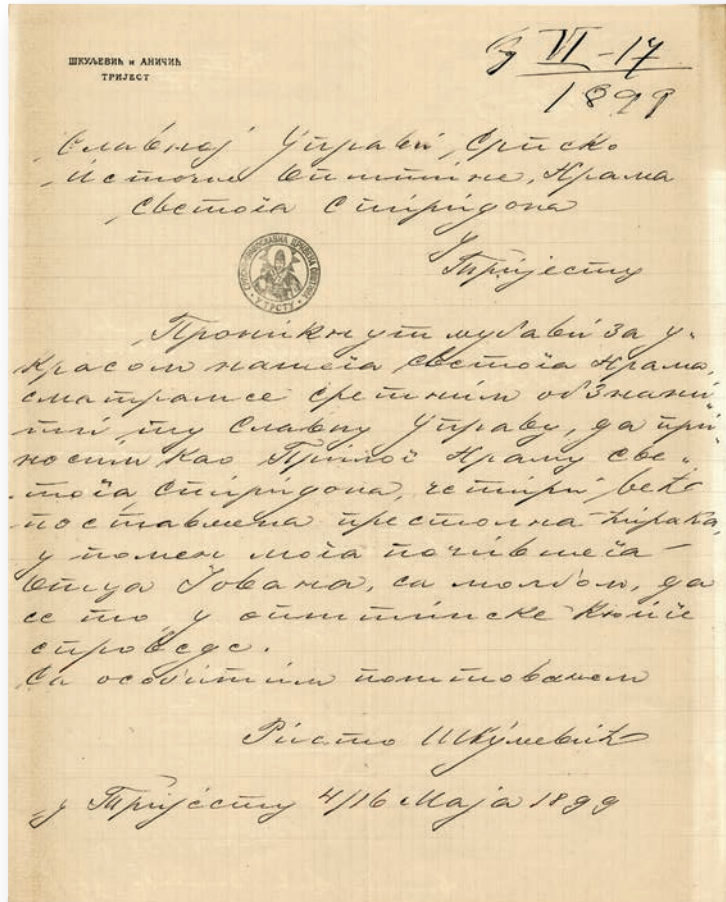 ШКУЉЕВИЋ и АНИЧИЋ
ТРИЈЕСТ
VI-17
1899
Славној Управи Српско
Источне Општине, Храма
Светога Спиридона
у
Тријесту
СРПСКО-ПРАВОСЛАВНА ЦРКВЕНА ОПШТИНА
У ТРСТУ
Проникнут љубави за у-
красом нашега светога Храма,
сматрам се сретним обзнани-
ти ту Славну Управу, да при-
носим као Прилог Храму Све-
тога Спиридона, четири већ
поставље­на престолна чирака,
у помен мога почившега
Отца Јована, са молбом, да
се то у општинске Књиге
спроведе.
Са особитим поштовањем
Ристо Шкуљевић
у Тријесту 4/16 Маја 1899